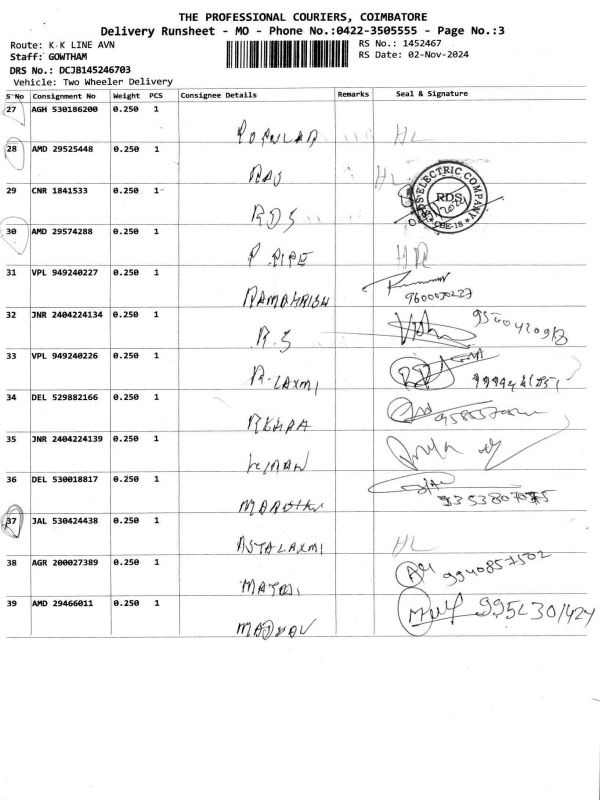 THE PROFESSIONAL COURIERS, COIMBATORE
Delivery Runsheet - MO - Phone No.:0422-3505555 - Page No.:3
Route: K K LINE AVN
RS No.: 1452467
Staff: GOWTHAM
RS Date: 02-Nov-2024
DRS No.: DCJB145246703
Vehicle: Two Wheeler Delivery
S No Consignment No Weight PCS Consignee Details Remarks Seal & Signature
27 AGH 530186200 0.250 1
POPULAR HL
28 AMD 29525448 0.250 1
RAJ HL
29 CNR 1841533 0.250 1
RDS
RDS ELECTRIC COMPANY
RDS
CBE-18
30 AMD 29574288 0.250 1
P. PIPE
31 VPL 949240227 0.250 1
RAMAKRISH 9600050227
32 JNR 2404224134 0.250 1
R.S
33 VPL 949240226 0.250 1
R. LAXMI
34 DEL 529882166 0.250 1
REKHA
35 JNR 2404224139 0.250 1
36 DEL 530018817 0.250 1
37 JAL 530424438 0.250 1
ASTALAXMI HL
38 AGR 200027389 0.250 1
9940857502
39 AMD 29466011 0.250 1
MADHAV